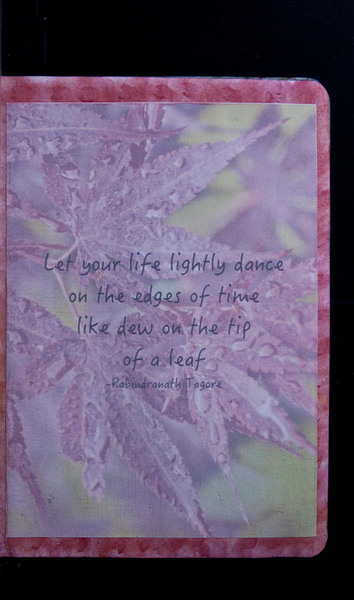 Let your life lightly dance
on the edges of time
like dew on the tip
of a leaf
-Rabindranath Tagore